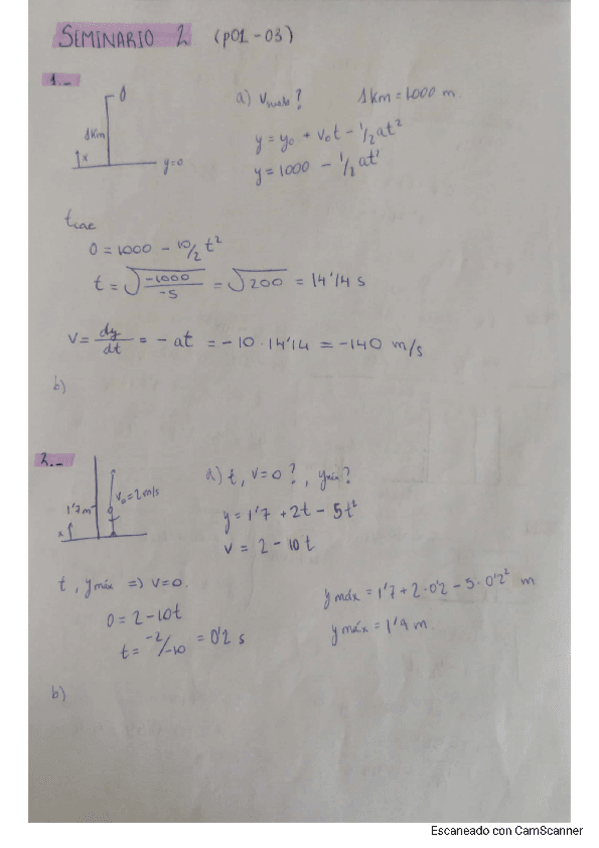 SEMINARIO 2 (p01-03)
1.-
1km
x
y=0
a) v suelo? 1km = 1000 m.
y = y₀ + v₀t - 1/2 at²
y = 1000 - 1/2 at²
t cae
0 = 1000 - 10/2 t²
t = √(-1000/-5) = √200 = 14'14 s
v = dy/dt = -at = -10·14'14 = -140 m/s
b)
2.-
1'7m
v₀=2m/s
x
a) t, v=0?, ymáx?
y = 1'7 + 2t - 5t²
v = 2 - 10t
t, ymáx => v=0.
0 = 2-10t
t = -2/-10 = 0'2 s
ymáx = 1'7 + 2·0'2 - 5·0'2² m
ymáx = 1'9 m.
b)
Escaneado con CamScanner